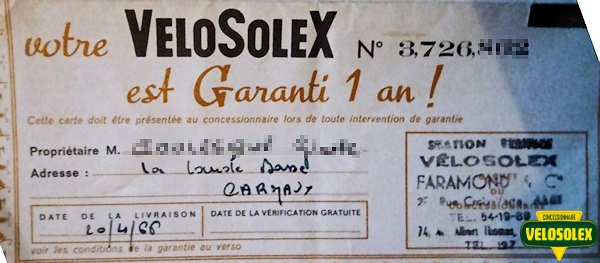 votre VELOSOLEX N° 3,726,
est Garanti 1 an !
Cette carte doit être présentée au concessionnaire lors de toute intervention de garantie
Propriétaire M.
Adresse : la
CARMAUX
DATE DE LA LIVRAISON
20/4/66
DATE DE LA VÉRIFICATION GRATUITE
voir les conditions de la garantie au verso
STATION SERVICE
VÉLOSOLEX
FARAMOND & Cie
DU
CONCESSIONNAIRE
TEL. 54-19-80
74, Av. Albert Thomas,
TEL. 127
CONCESSIONNAIRE
VELOSOLEX